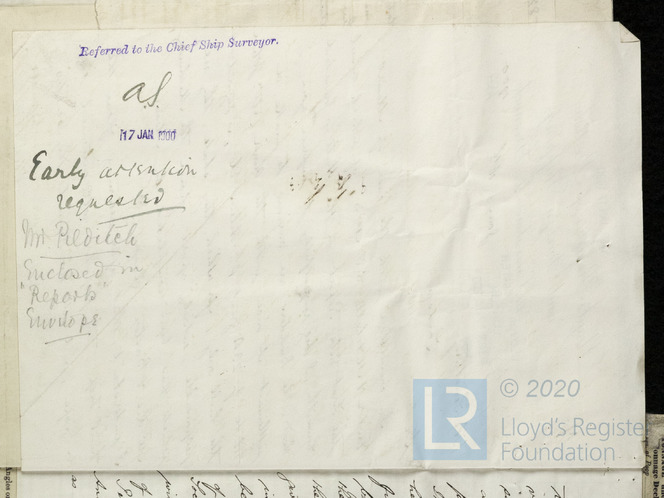 Referred to the Chief Ship Surveyor.
a.S.
17 JAN 1900
Early attention
requested
Mr Pilditch
Enclosed in
"Reports"
Envelope
LR
© 2020
Lloyd's Registe
Foundation